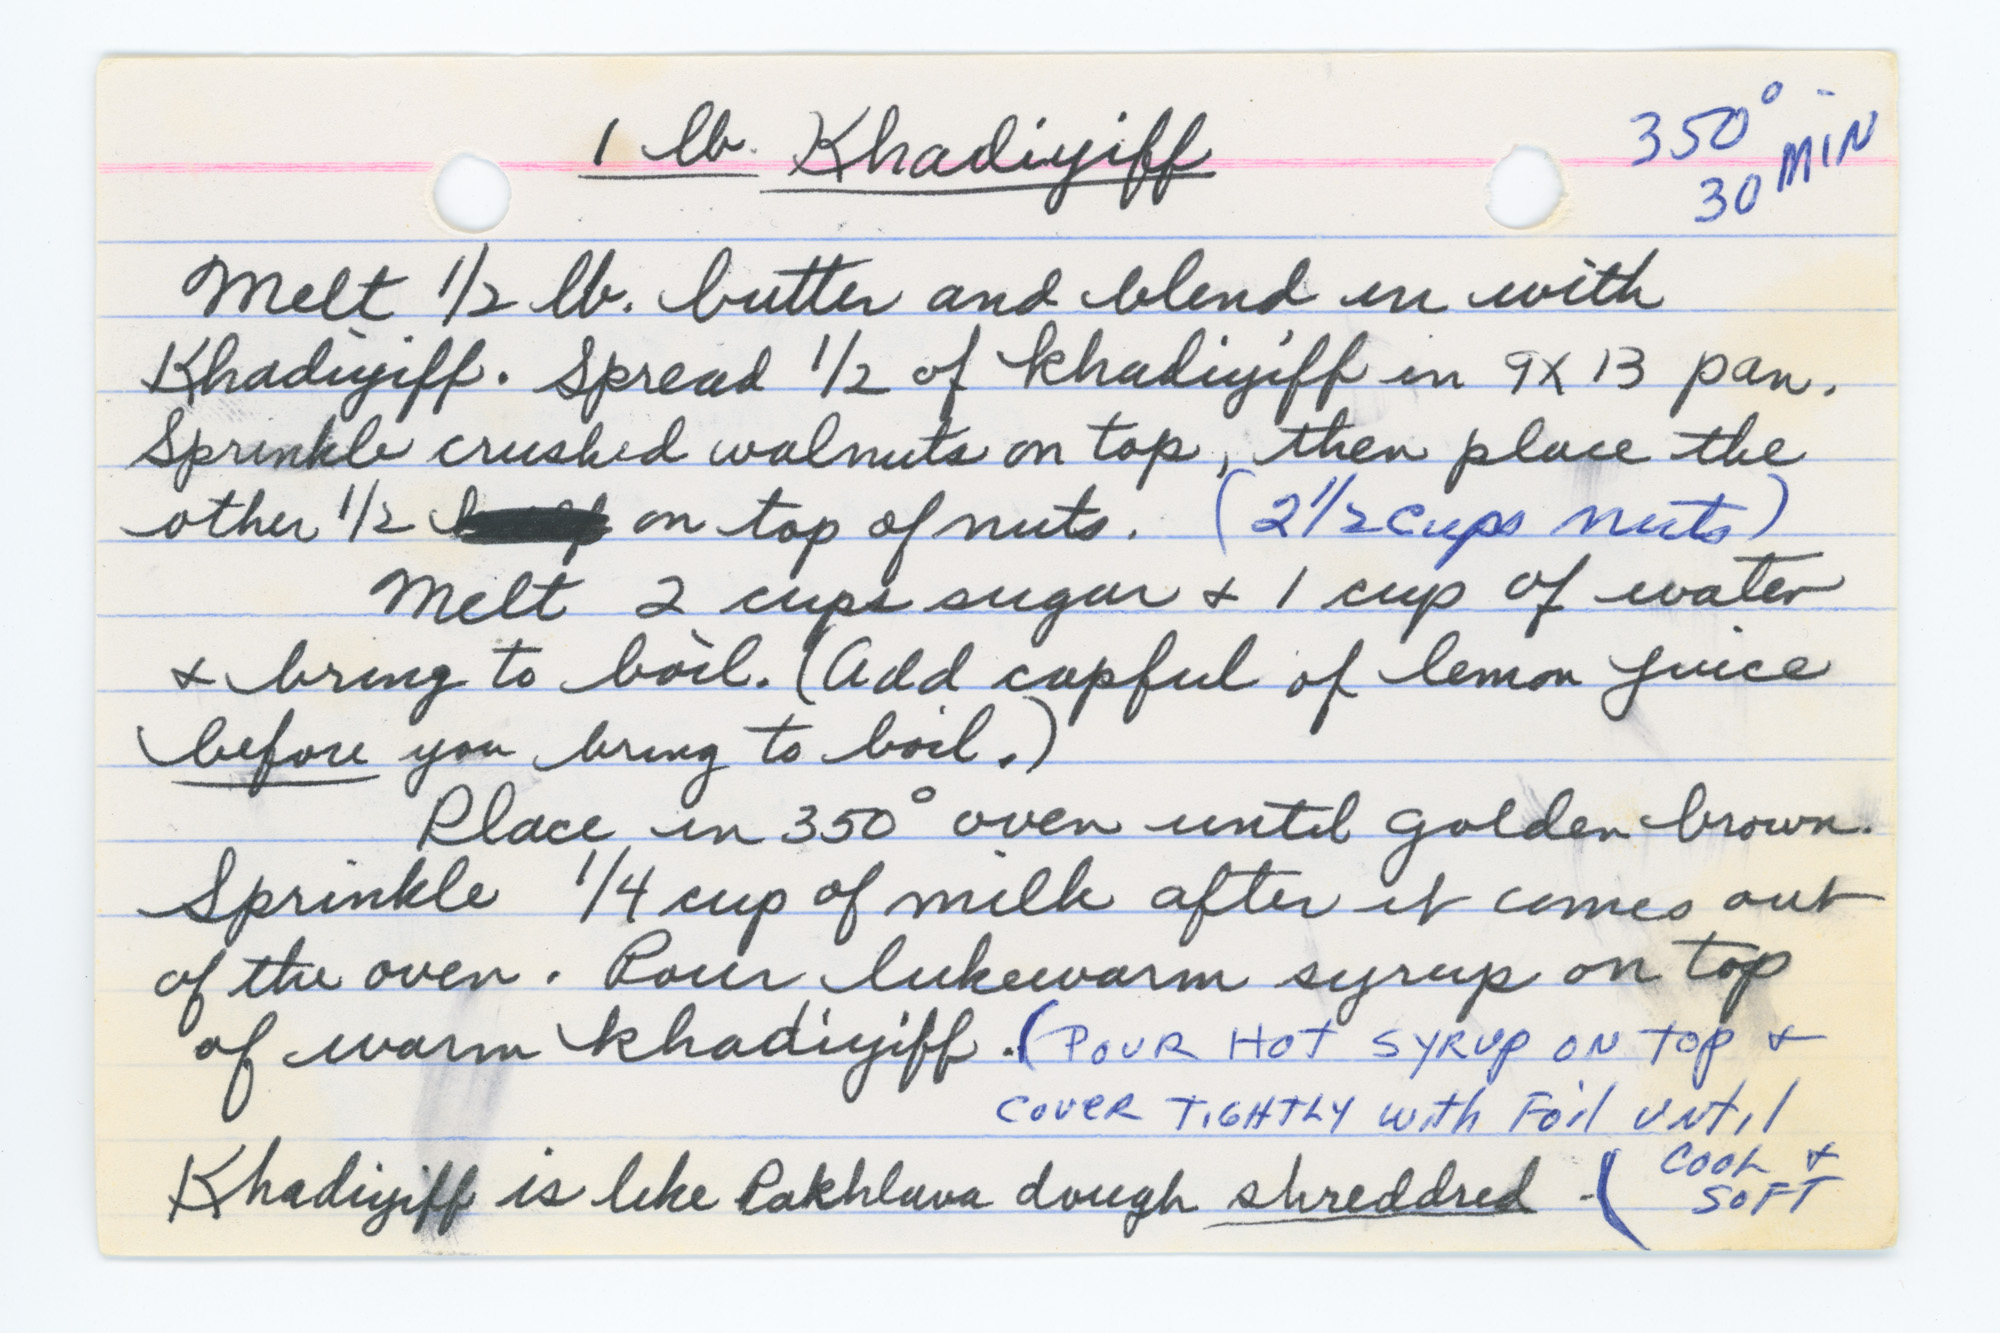 1 lb. Khadiyiff
350°
30 MIN
Melt 1/2 lb. butter and blend in with
Khadiyiff. Spread 1/2 of khadiyiff in 9X13 pan.
Sprinkle crushed walnuts on top, then place the
other 1/2 on top of nuts. (2 1/2 cups nuts)
Melt 2 cups sugar & 1 cup of water
& bring to boil. (Add capful of lemon juice
before you bring to boil.)
Place in 350° oven until golden brown.
Sprinkle 1/4 cup of milk after it comes out
of the oven. Pour lukewarm syrup on top
of warm khadiyiff. (POUR HOT SYRUP ON TOP &
COVER TIGHTLY with Foil UNTIL
COOL &
SOFT
Khadiyiff is like Pakhlava dough shreddred